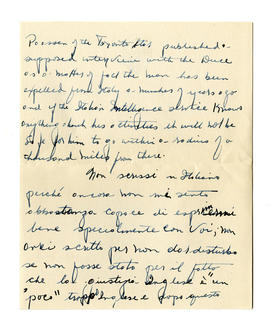 Poessen of the Toronto Star published a
supposed interview with the Duce
as a matter of fact the man has been
expelled from Italy a number of years ago
and if the Italian Intelligence Service knows
anything about his activities it will not be
safe for him to go within a radius of a
thousand miles from there.
Non scrissi in Italiano
perché ancora non mi sento
abbastanza capace di esprimermi
bene specialmente con Voi; non
avrei scritto per non dar disturbo
se non fosse stato per il fatto
che la giustizia Inglese è "un
poco" troppo inglese e dopo questo